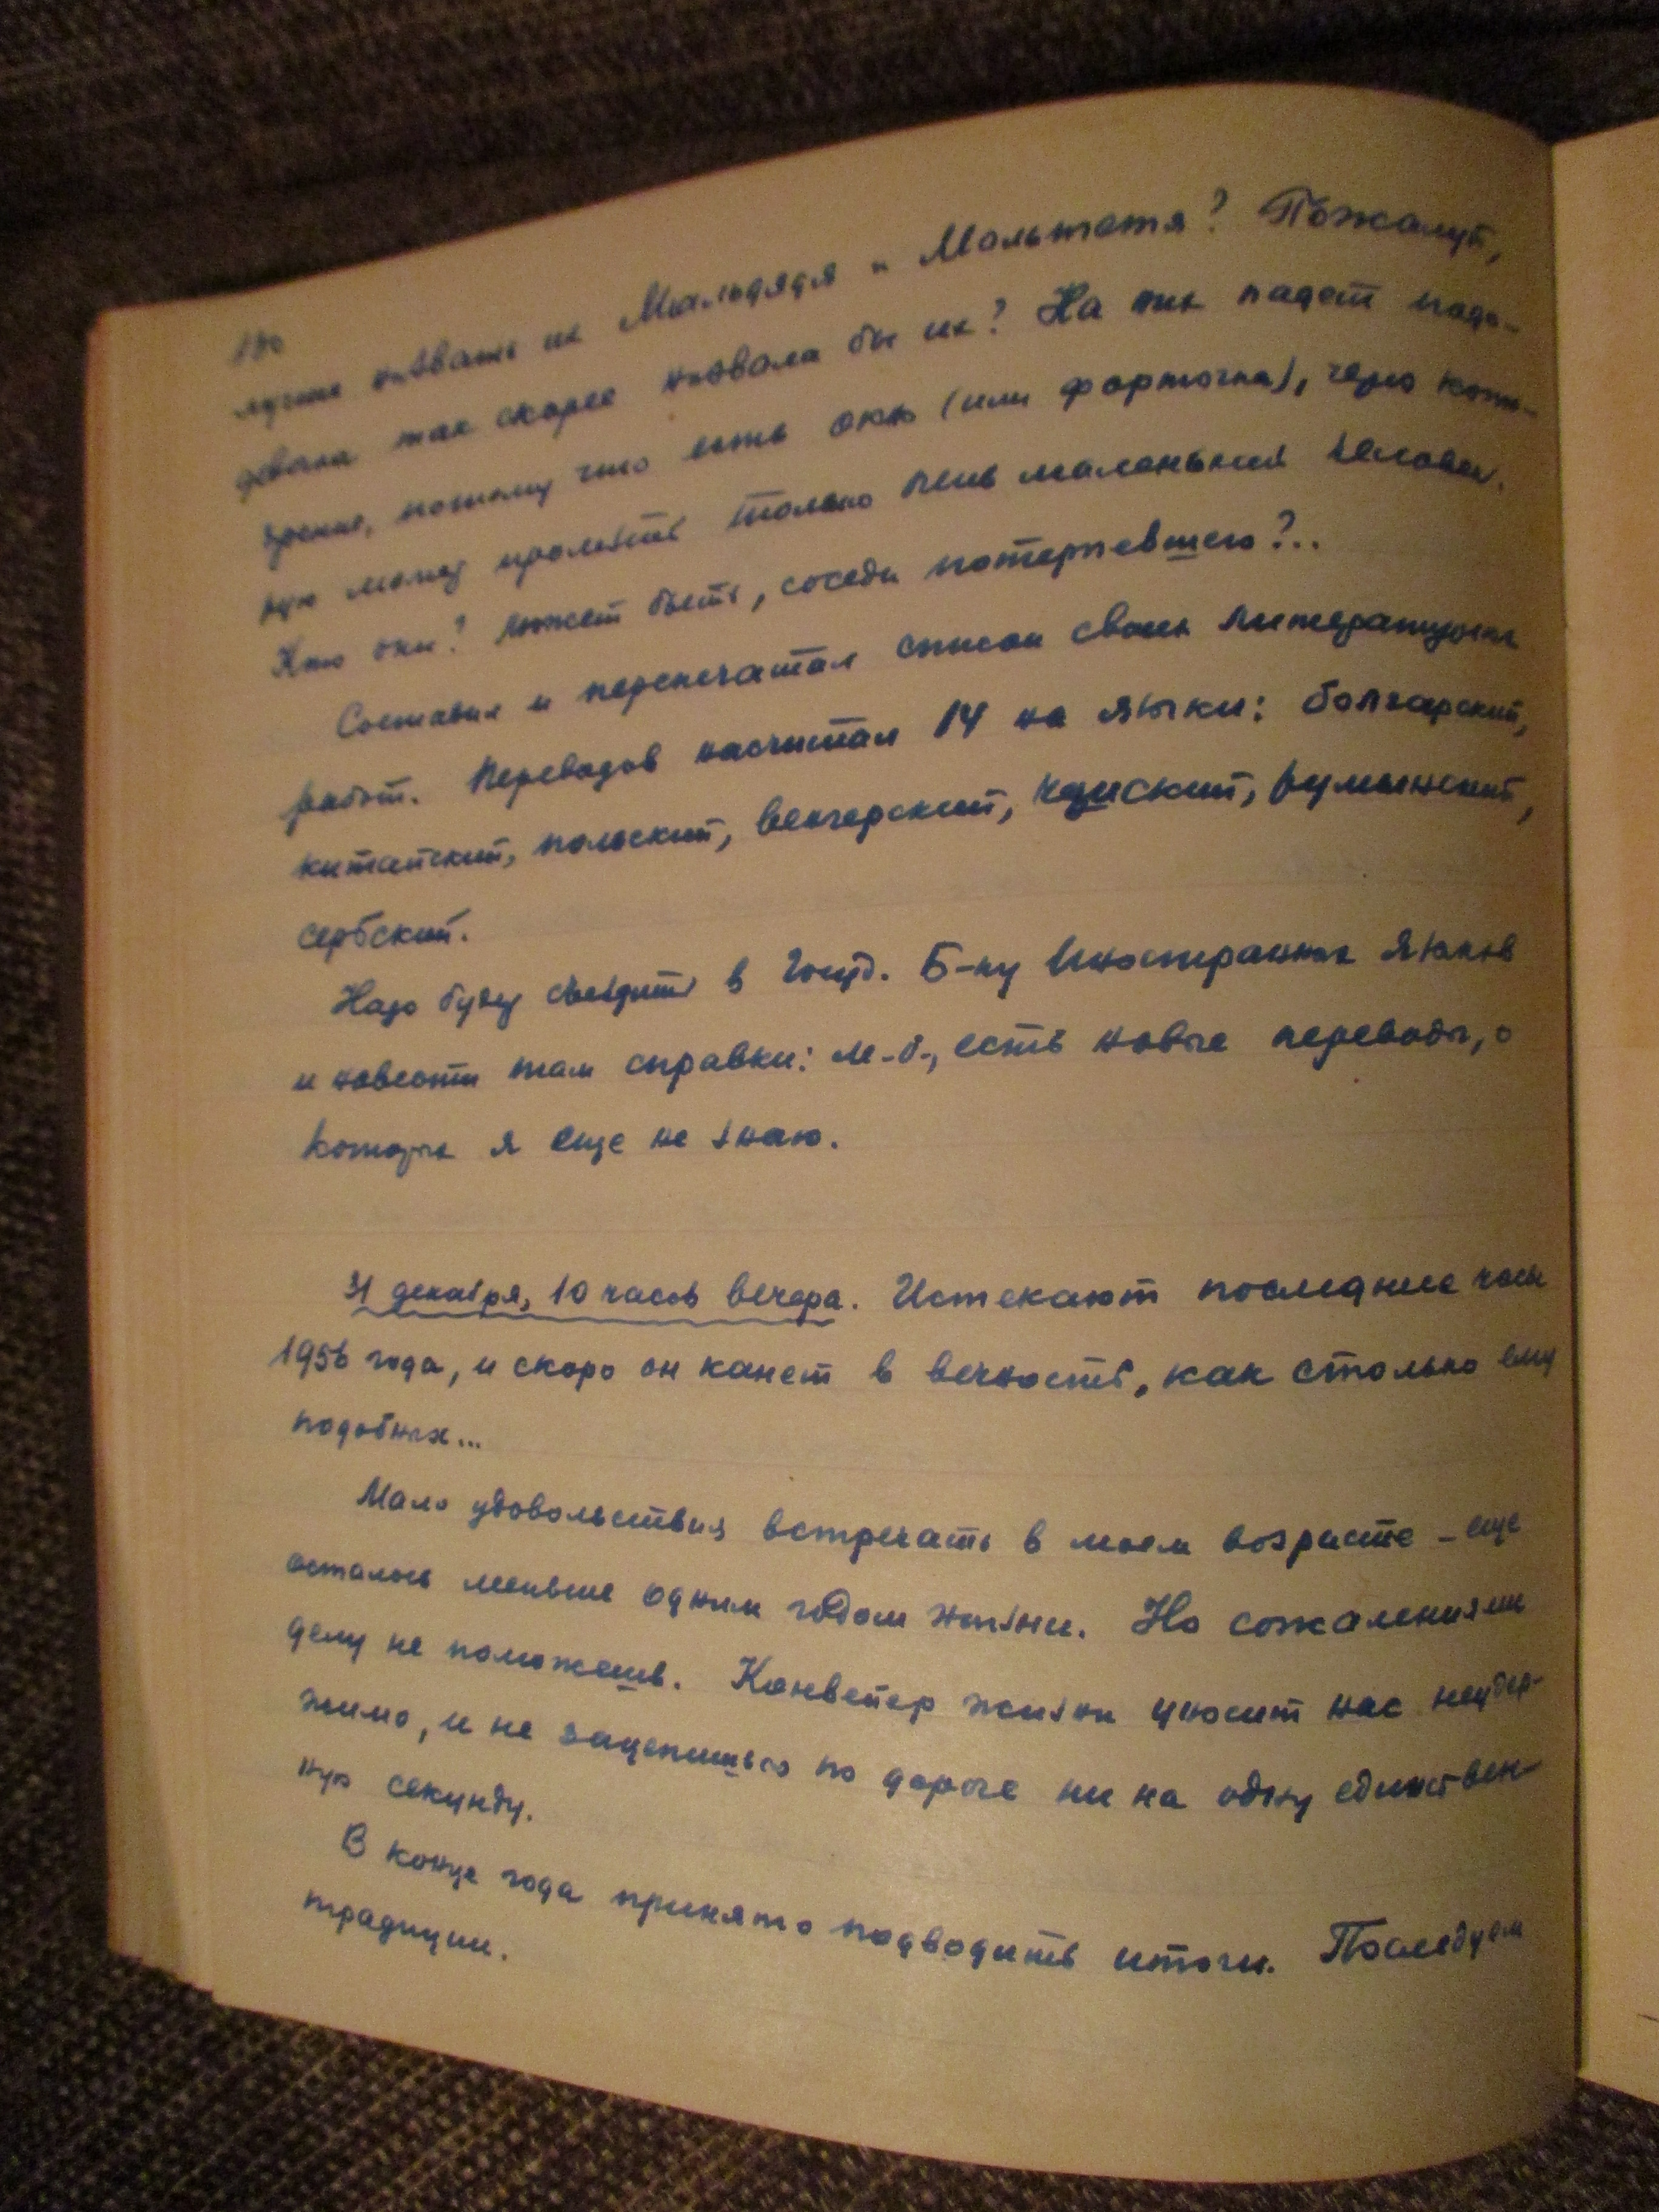 180
лучше назвать их Мальдядя и Мальтетя? Пожалуй,
девочка так скорее назвала бы их? На них падет подо-
зрение, потому что есть окно (или форточка), через кото-
рую может пролезть только очень маленький человек.
Кто они? Может быть, соседи потерпевшего?..
Составил и перепечатал список своих литературных
работ. Переводов насчитал 14 на языки: болгарский,
китайский, польский, венгерский, чешский, румынский,
сербский.
Надо будет съездить в Госуд. Б-ку Иностранных языков
и навести там справки: м.б., есть новые переводы, о
которых я еще не знаю.
31 декабря, 10 часов вечера. Истекают последние часы
1956 года, и скоро он канет в вечность, как столько ему
подобных...
Мало удовольствия встречать в моем возрасте – еще
осталось меньше одним годом жизни. Но сожалениями
делу не поможешь. Конвейер жизни уносит нас неудер-
жимо, и не зацепишься по дороге ни на одну единствен-
ную секунду.
В конце года принято подводить итоги. Последуем
традиции.